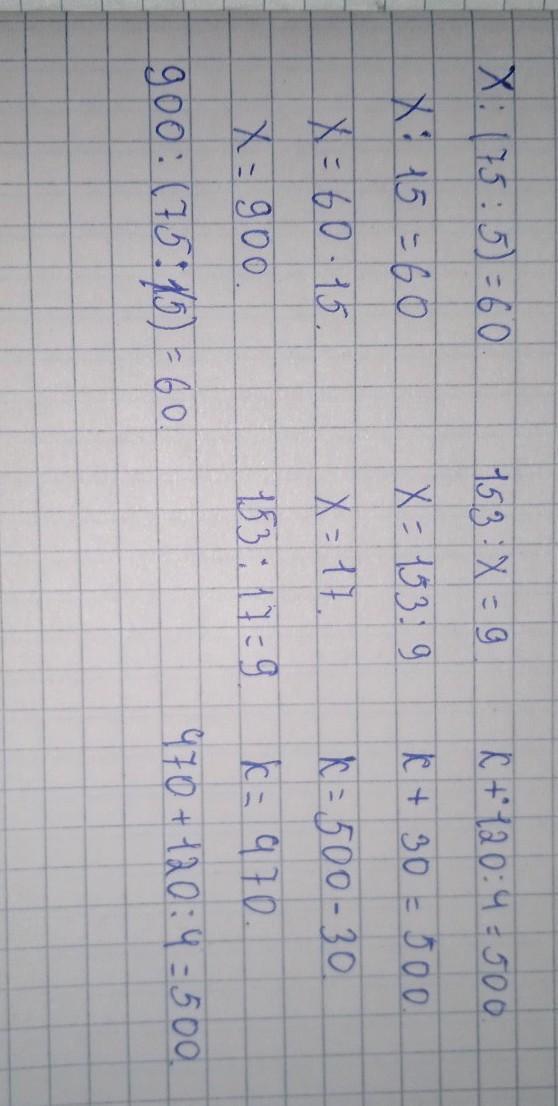 x : (75 : 5) = 60
x : 15 = 60
x = 60 · 15.
x = 900.
900 : (75 : 5) = 60.
153 : x = 9.
x = 153 : 9
x = 17.
153 : 17 = 9.
к + 120 : 4 = 500.
к + 30 = 500.
к = 500 - 30.
к = 470.
470 + 120 : 4 = 500.